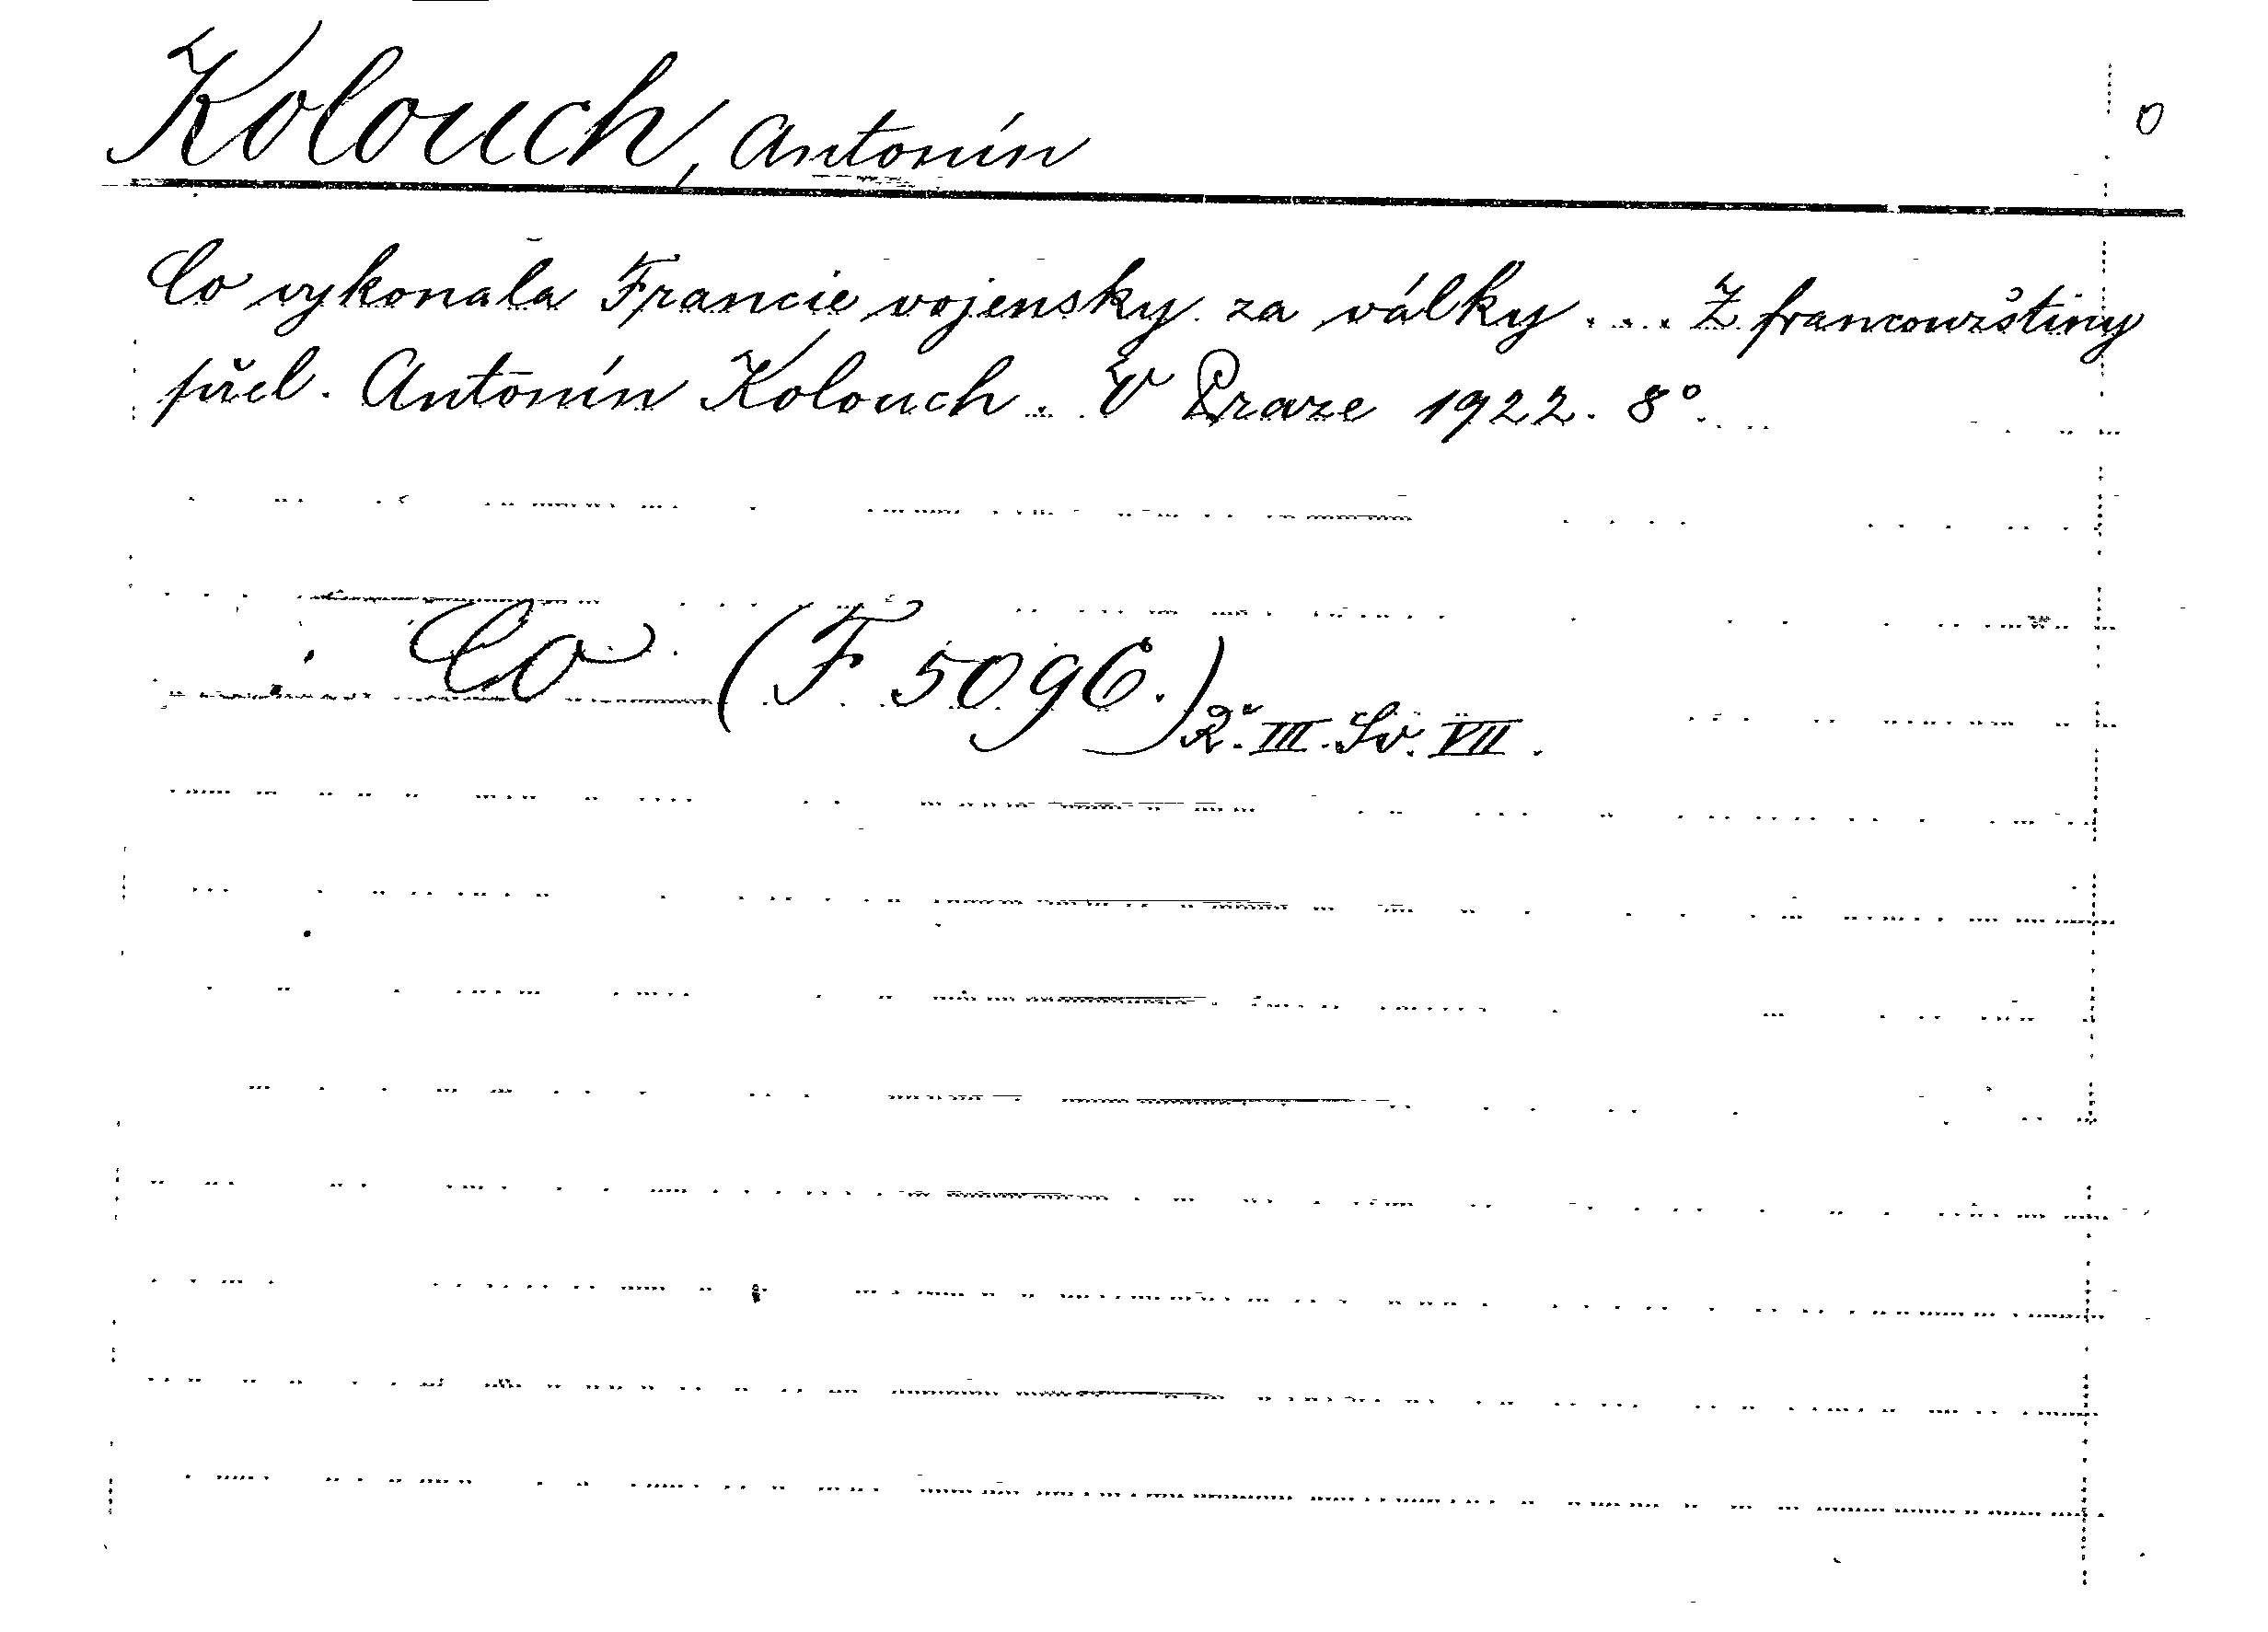 Kolouch, Antonín
Co vykonala Francie vojensky za války . . . Z francouzštiny
přel. Antonín Kolouch. V Praze 1922. 8°.
Co (F 5096.) Ř. III. Sv. VII.